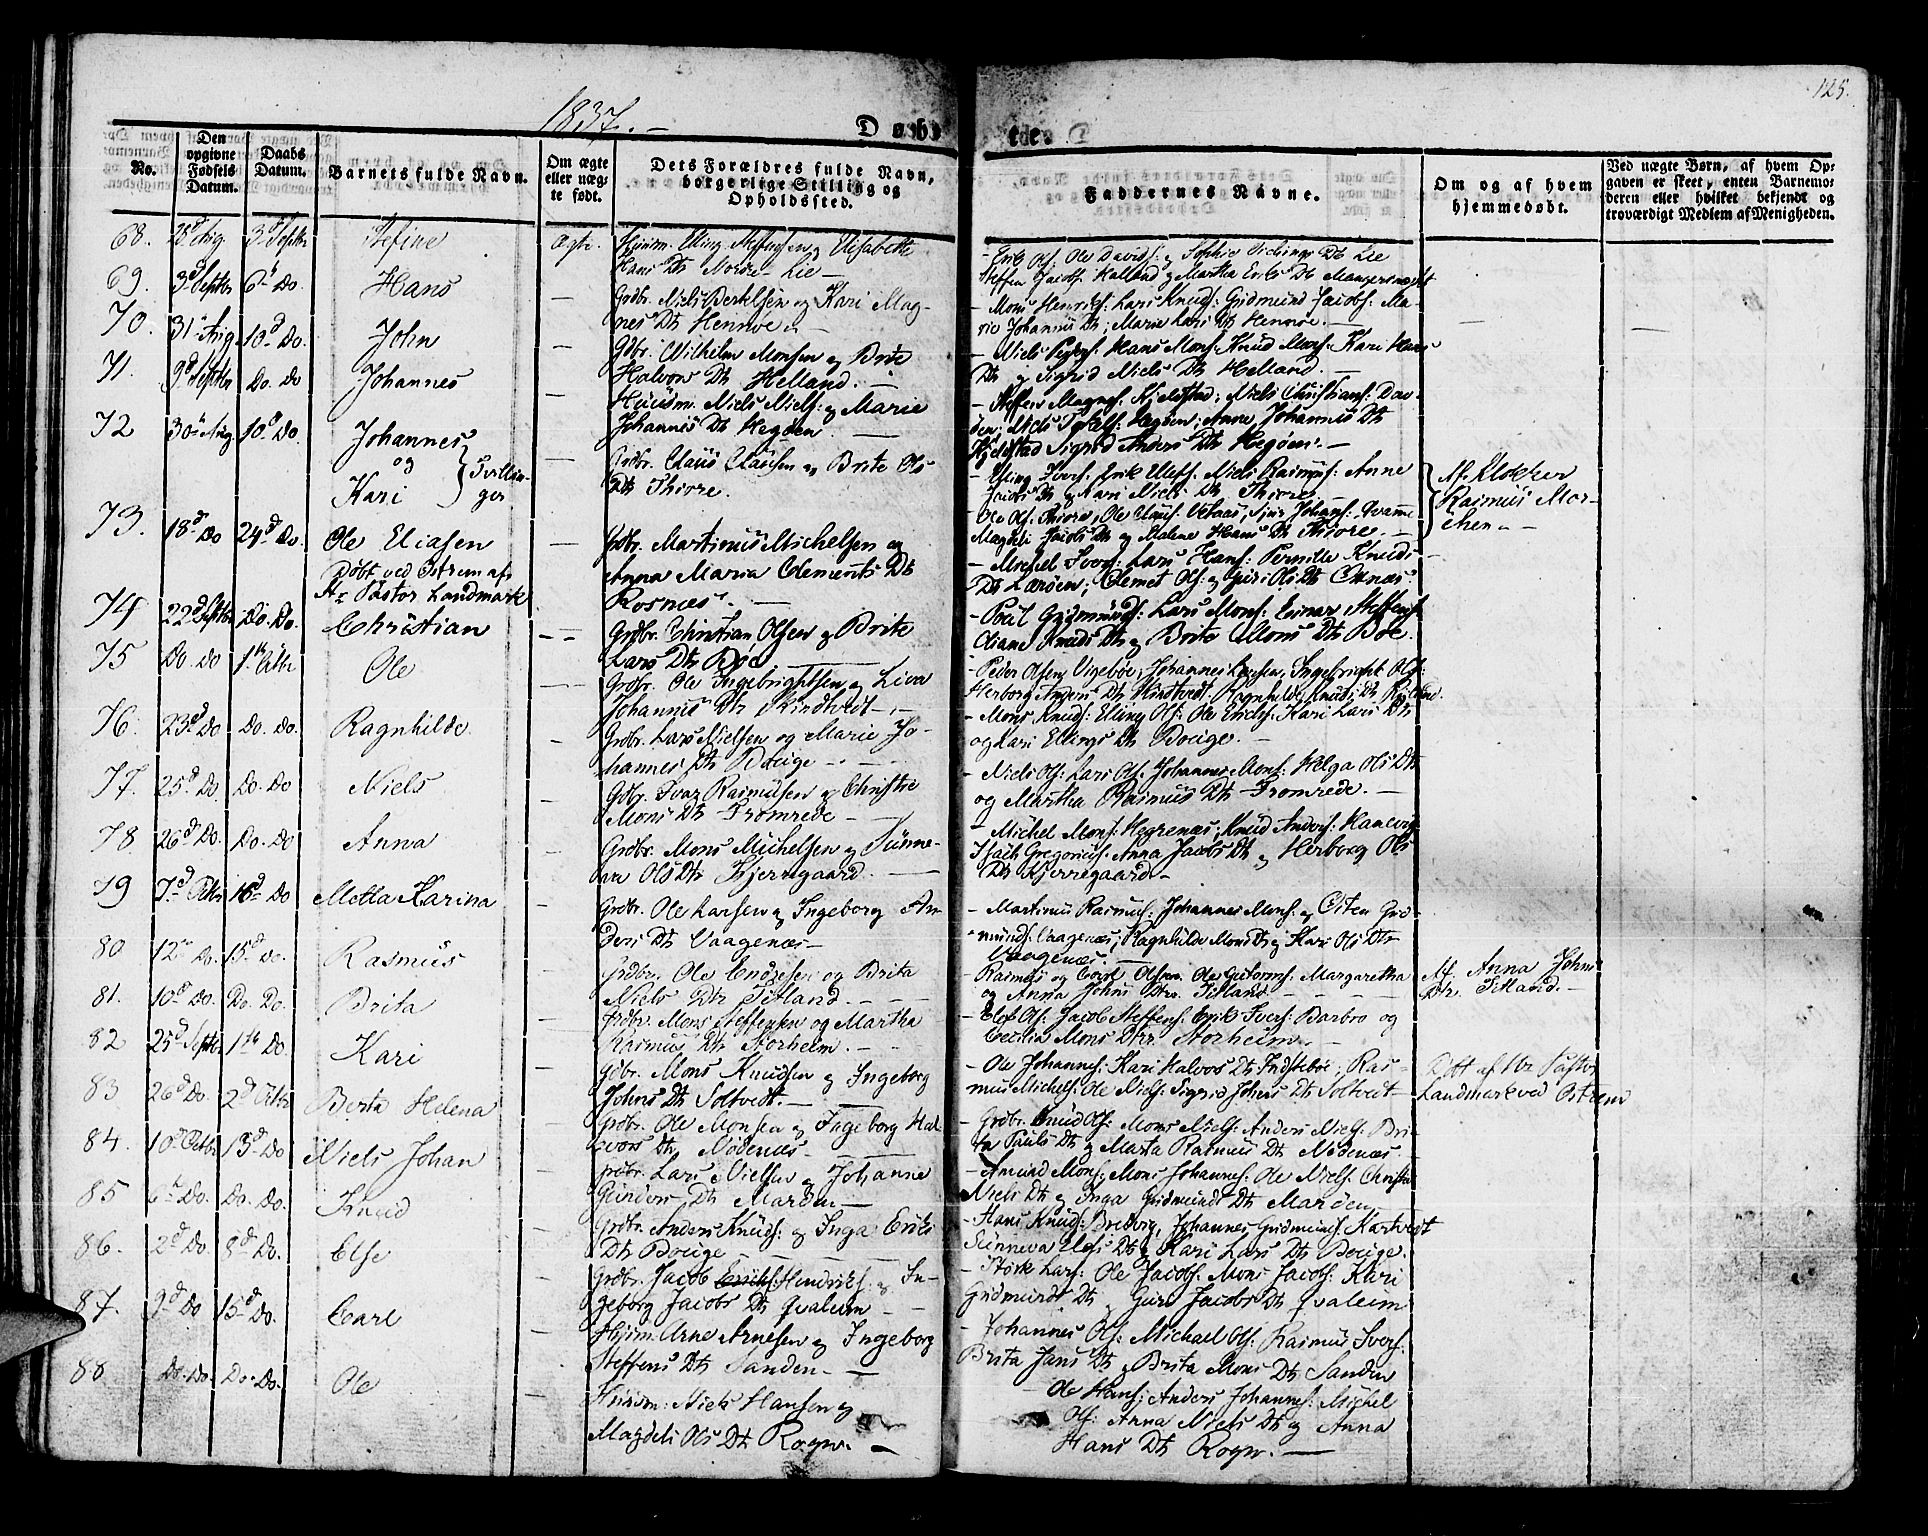 1837.
125.
Døbte.
No.
Den opgivne Fødsels Datum.
Daabs Datum.
Barnets fulde Navn.
Om ægte eller uægte født.
Dets Forældres fulde Navn, borgerlige Stilling og Opholdssted.
Faddernes Navne.
Om og af hvem hjemmedøbt.
Ved uægte Børn, af hvem Opgaven er skeet, enten Barnemoderen eller hvilket bekjendt og troværdigt Medlem af Menigheden.
68. 28d Aug. 3d Septbr Stefine ægte. Huusm. Elling Steffensen og Elisabeth
Hans Dtr Norøe Lie
- Erik Ols. Ole Davids: og Sophie Dtr Lie
Steffen Jacobs: Kalland og Martha Eriks Dtr
69. 3d Septbr 6te Do. Hans
Grdbr. Niels Bertelsen og Kari Magnes Dtr Hennøe
- Mons Henriks: Lars Knuds: Gudmund Jacobs: Marie Johannis Dtr; Marie Lars Dtr Hennøe.
70. 31te Aug. 10d Do. John
Gdbr. Wilhelm Monsen og Brite
Halvors Dtr Helland.
- Niels Peders: Hans Mons: Knud Mons: Kari Hans
Dtr og Sigrid Niels Dtr Helland.
71. 9d Septbr Do. Do Johannes
Huusm. Niels Niels: og Marie
Johannis Dtr Hegøen
- Steffen Magnes: Kjelestad; Niels Christians:
Hegøen; Anne Johannis Dtr
Kjelestad Sigrid Anders Dtr Hegøen.
72 30te Aug. 10d Do. Johannes
og
Kari
Tvillinger
Grdbr. Claus Clausen og Brite Ols
Dtr Thiore.
- Elling Ivers: Erik Ellefs: Niels Rasmus: Anne
Jacobs Dtr og Kari Niels Dtr Thiore
Ole Ols: Thiore, Ole Claus: Johans:
Magdeli Jacobs Dtr og Malene Hans Dtr Thiore.
Af Klokker
Rasmus Mor-
chen
73. 18d Do 24d Do. Ole Eliasen
Døbt ved Ostrem af
Hr Pastor Landmark
Grdbr. Martinus Michelsen og
Anna Maria Clements Dtr
Rosnæs.
- Michel Ivers: Lars Hans: Pernille Knuds
Dtr Lærøen; Clemet Ols: og Guri Ols Dtr
74 22d Septbr Do. Do. Christian
Grdbr. Christian Olsen og Brite
Lars Dtr Bøe
- Poul Gudmunds: Lars Mons: Einar Steffens:
Knuds Dtr og Brite Mons Dtr Bøe.
75 Do. Do 1te Octbr Ole
Grdbr. Ole Ingebrightsen og Liva
Johannis Dtr Kindtvedt
- Peder Olsen Vigebøe; Johannes Ingebright Ols:
Herborg Anders Dtr Kindtvedt. Ragnhilde Knuds Dtr
76. 23d Do Do. Do. Ragnhilde
Grdbr. Lars Nielsen og Marie Jo-
hannes Dtr Bouge
- Mons Knuds: Elling Ols: Ole Ericks: Kari Lars Dtr
og Kari Ellings Dtr Bouge.
77. 25d Do. Do. Do Niels
Gdbr. Ivar Rasmusen og Christie
Mons Dtr Fromrede
- Niels Ols: Lars Ols: Johannes Mons: Helga Ols Dtr
og Martha Rasmus Dtr Fromrede.
78. 26d Do. Do. Do Anna
Grdbr. Mons Michelsen og Sunne-
va Ols Dtr Kjerregaard.
- Michel Mons: Hegrenæs; Knud Anders: Haneevig
Isach Gregorius: Anna Jacobs Dtr og Herborg Ols
Dtr Kjerregaard
79 7d Octbr 15d Do Metta Karina
Grdbr. Ole Larsen og Ingeborg An-
ders Dtr Vaagenæs
- Martinus Rasmus: Johannes Mons: og Osten Gud-
munds: Vaagenæs; Ragnhilde Mons Dtr og Kari Ols Dtr
Vaagenæs.
80 12te Do. 15d Do. Rasmus
Grdbr. Ole Endresen og Brita
Niels Dtr Titland.
- Rasmus og Olsen. Ole Guttorms: Margaretha
og Anna Johns Dtre Titland
Af Anna Johns
Dtr Titland.
81. 10d Do. Do. Do. Brita
Grdbr. Mons Steffensen og Martha
Rasmus Dtr Storheim.
- Elef Ols: Jacob Steffens: Erik Ivers: Barbro og
Cecilia Mons Dtre Storheim.
82 25d Septbr 1te Do. Kari
Gdbr. Mons Knudsen og Ingeborg
Johns Dtr Soltvedt.
- Ole Johannes: Kari Halvors Dtr Indstebøe; Ras-
mus Michels: Ole Niels: Sigrid Johns Dtr Soltvedt
Døbt af Hr Pastor
Landmark ved Ostrem
83 26d Do. 2d Octbr Berta Helena
Grdbr. Ole Monsen og Ingeborg Hal-
vors Dtr Nødenæs
- Grdbr. Knud Ols: Mons Niels: Anders Niels: Bri-
ta Pauls Dtr og Marta Rasmus Dtr Nødenæs
84. 10d Octbr 13d Do Niels Johan
Grdbr. Lars Nielsen og Johanne
Gunders Dtr Marøen
- Amund Mons: Mons Johannes: Ole Niels: Christi
Niels Dtr og Inga Gudmundt Dtr Marøen
85 6te Do. Do. Do. Knud
Grdbr. Anders Knuds: og Inga Eriks
Dtr Bouge
- Hans Knuds: Bredvig, Johannes Gudmunds: Kartvedt
Sunneva Elefs Dtr og Kari Lars Dtr Bouge.
86. 2d Do. 8d Do. Else
Grdbr. Jacob Ericks: Hendriks: og In-
geborg Jacobs Dtr Qvaleim
- Størk Lars: Ole Jacobs: Mons Jacobs: Kari
Gudmundt Dtr og Guri Jacobs Dtr Qvaleim
87. 9d Do 15d Do. Carl
Huusm. Arne Arnesen og Ingeborg
Steffens Dtr Sanden
- Johannes Ols: Michael Ols: Rasmus Ivers:
Brita Jans Dtr og Brita Mons Dtr Sanden
88 Do. Do. Do. Do. Ole
Huusm: Niels Hansen og
Magdeli Ols Dtr Rogne.
- Ole Hans: Anders Johannes: Michel
Ols: Anna Niels Dtr og Anna
Hans Dtr Rogne.